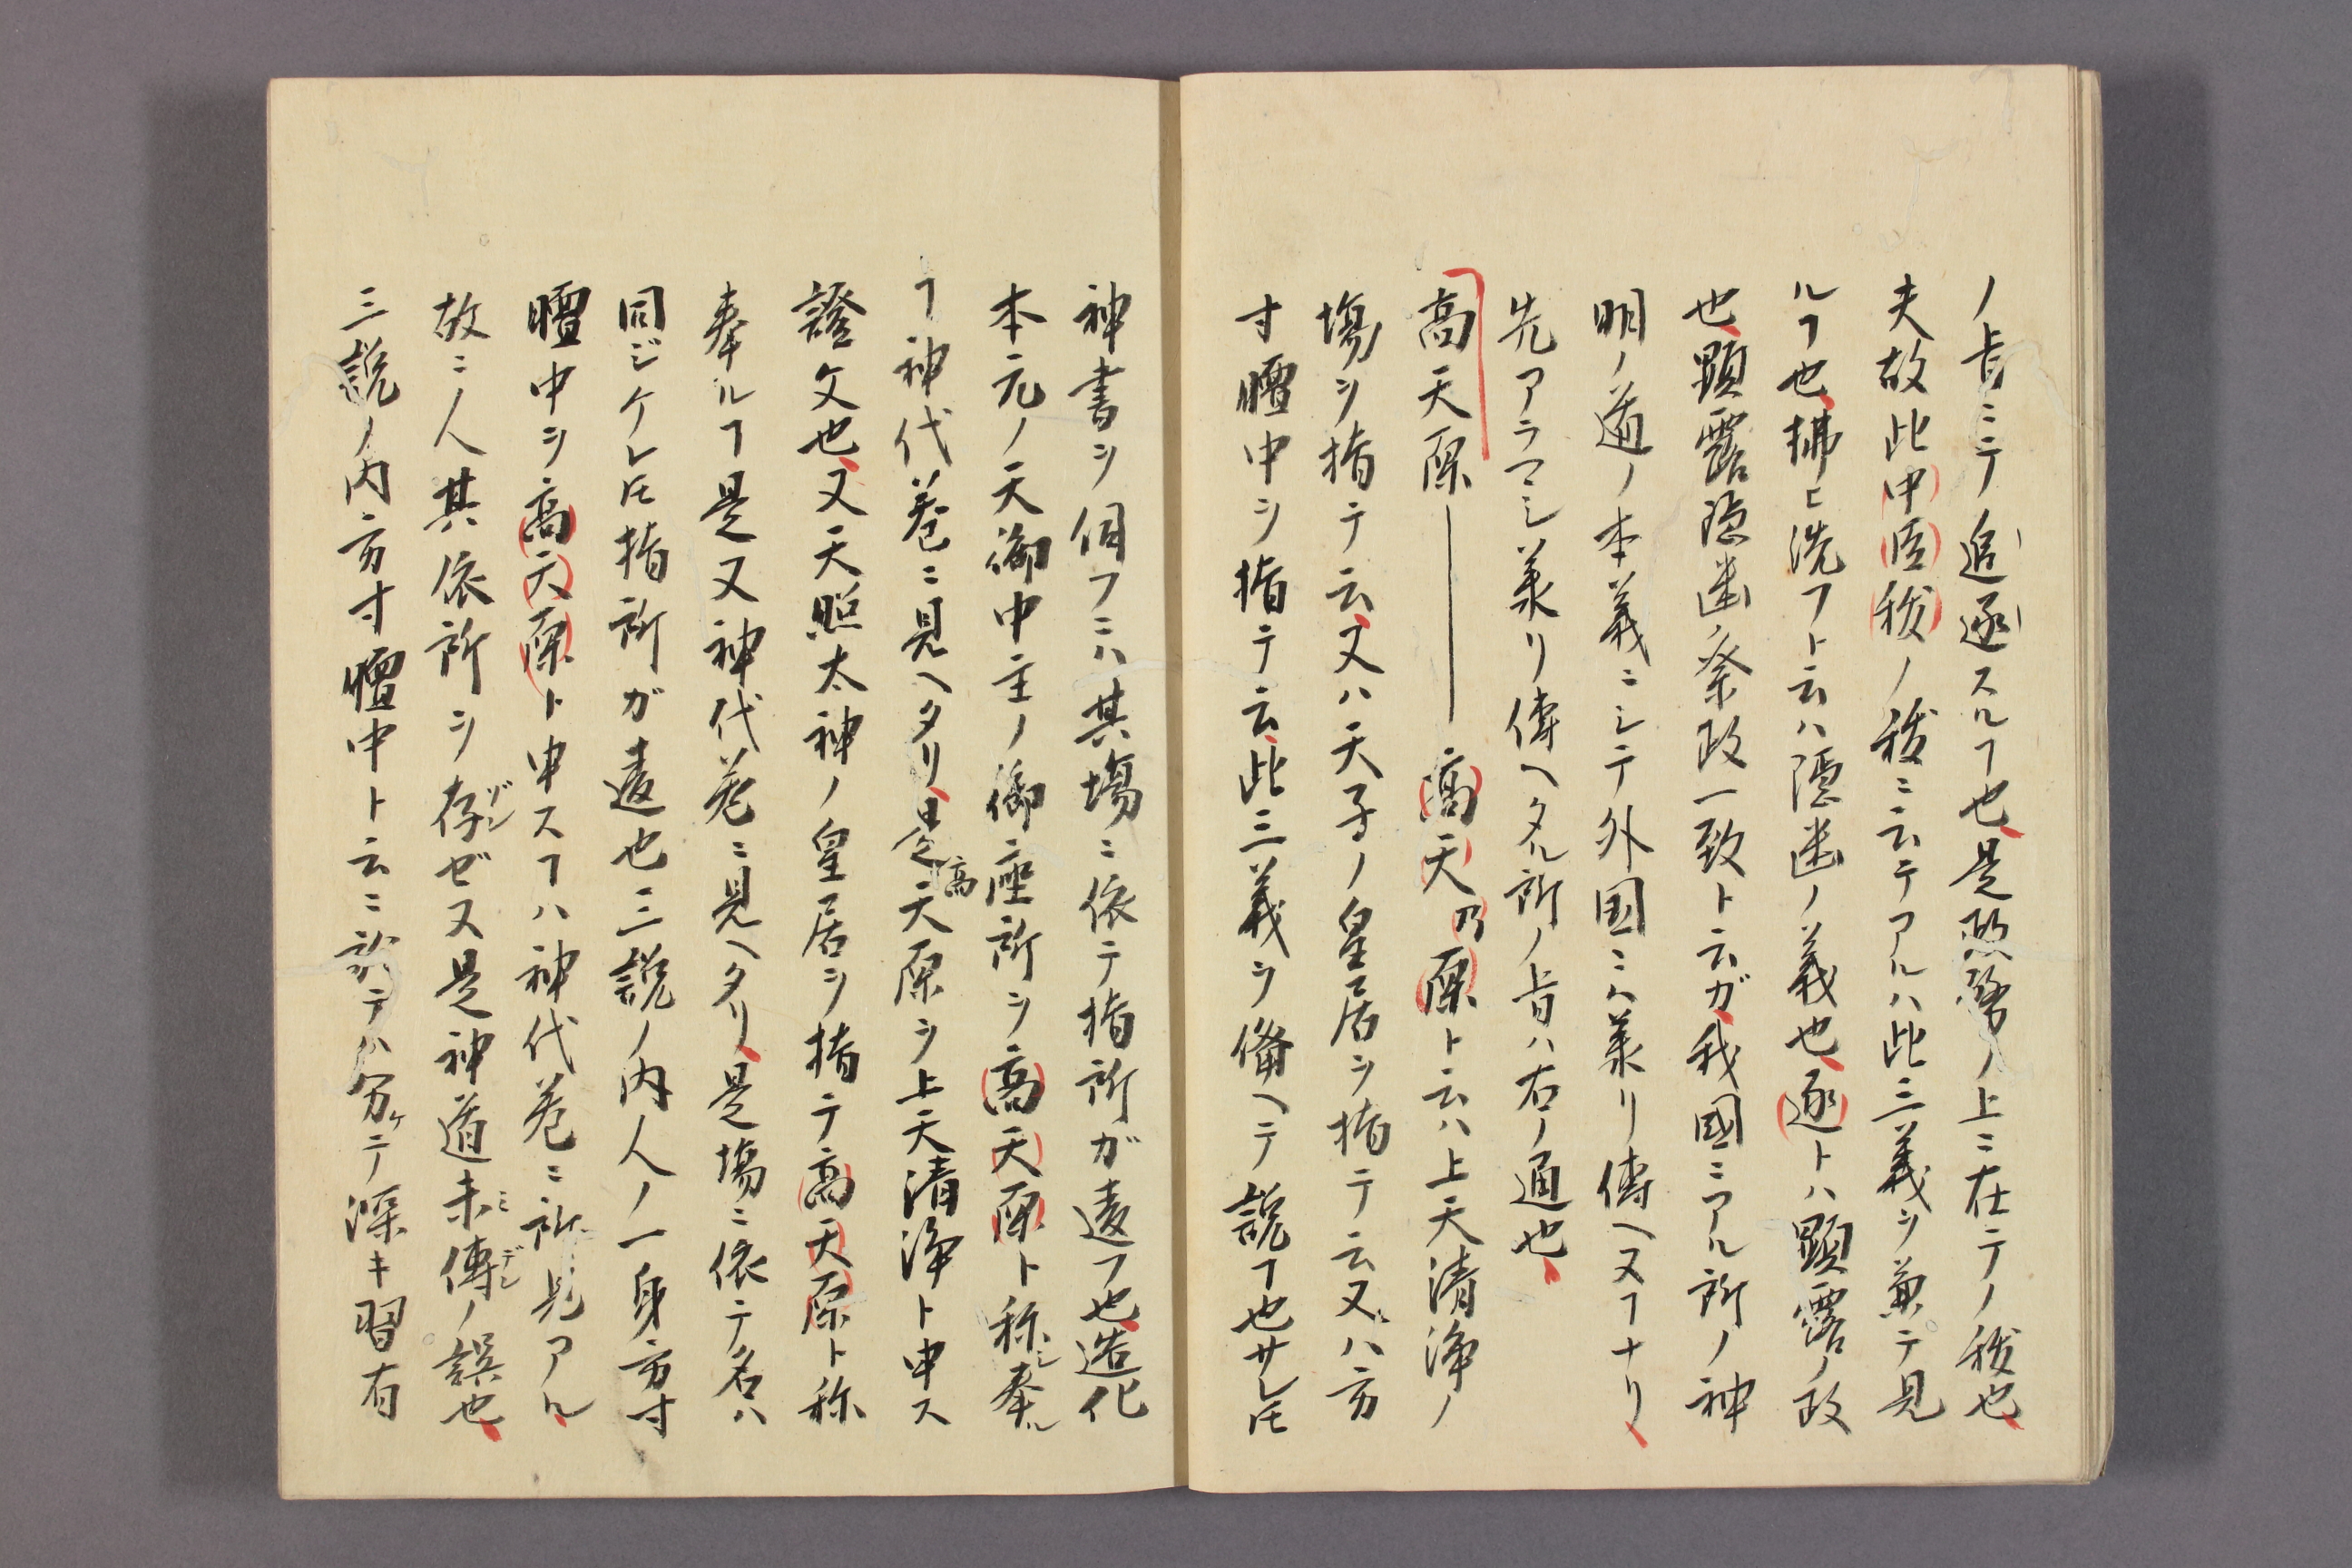 ノ旨ニテ追逐スルヿ也、是懲ノ上ニ在テノ祓也、
夫故此中臣祓ノ祓ニ云テアルハ此三義ヲ兼テ見
ルヿ也、拂ヒ洗フト云ハ隠幽ノ義也、逐トハ顕露ノ政
也、顕露隠幽祭政一致ト云ガ我國ニアル所ノ神
明ノ道ノ本義ニシテ外国ニハ無リ傳ヘヌヿナリ、
先アラマシ義リ傳ヘタル所ノ旨ハ右ノ通也、
高天原―――高天乃原ト云ハ上天清浄ノ
場ヲ指テ云、又ハ天子ノ皇居ヲ指テ云又ハ方
寸膻中ヲ指テ云、此三義ヲ備ヘテ説ヿ也サレ𪜈
神書ヲ伺フニハ其場ニ依テ指所ガ違フ也、造化
本元ノ天御中主ノ御座所ヲ高天原ト称シ奉ル
ヿ神代巻ニ見ヘタリ、是高天原ヲ上天清浄ト申ス
證文也、又天照太神ノ皇居ヲ指テ高天原ト称
奉ルヿ是又神代巻ニ見ヘタリ、是場ニ依テ名ハ
同ジケレ𪜈指所ガ違也三説ノ内人ノ一身方寸
膻中ヲ高天原ト申スヿハ神代巻ニ所見アル、
故ニ人其依所ヲ存ゼヌ是神道未傳ノ誤也、
三説ノ内方寸膻中ト云ニ於テハ別ケテ深キ習有